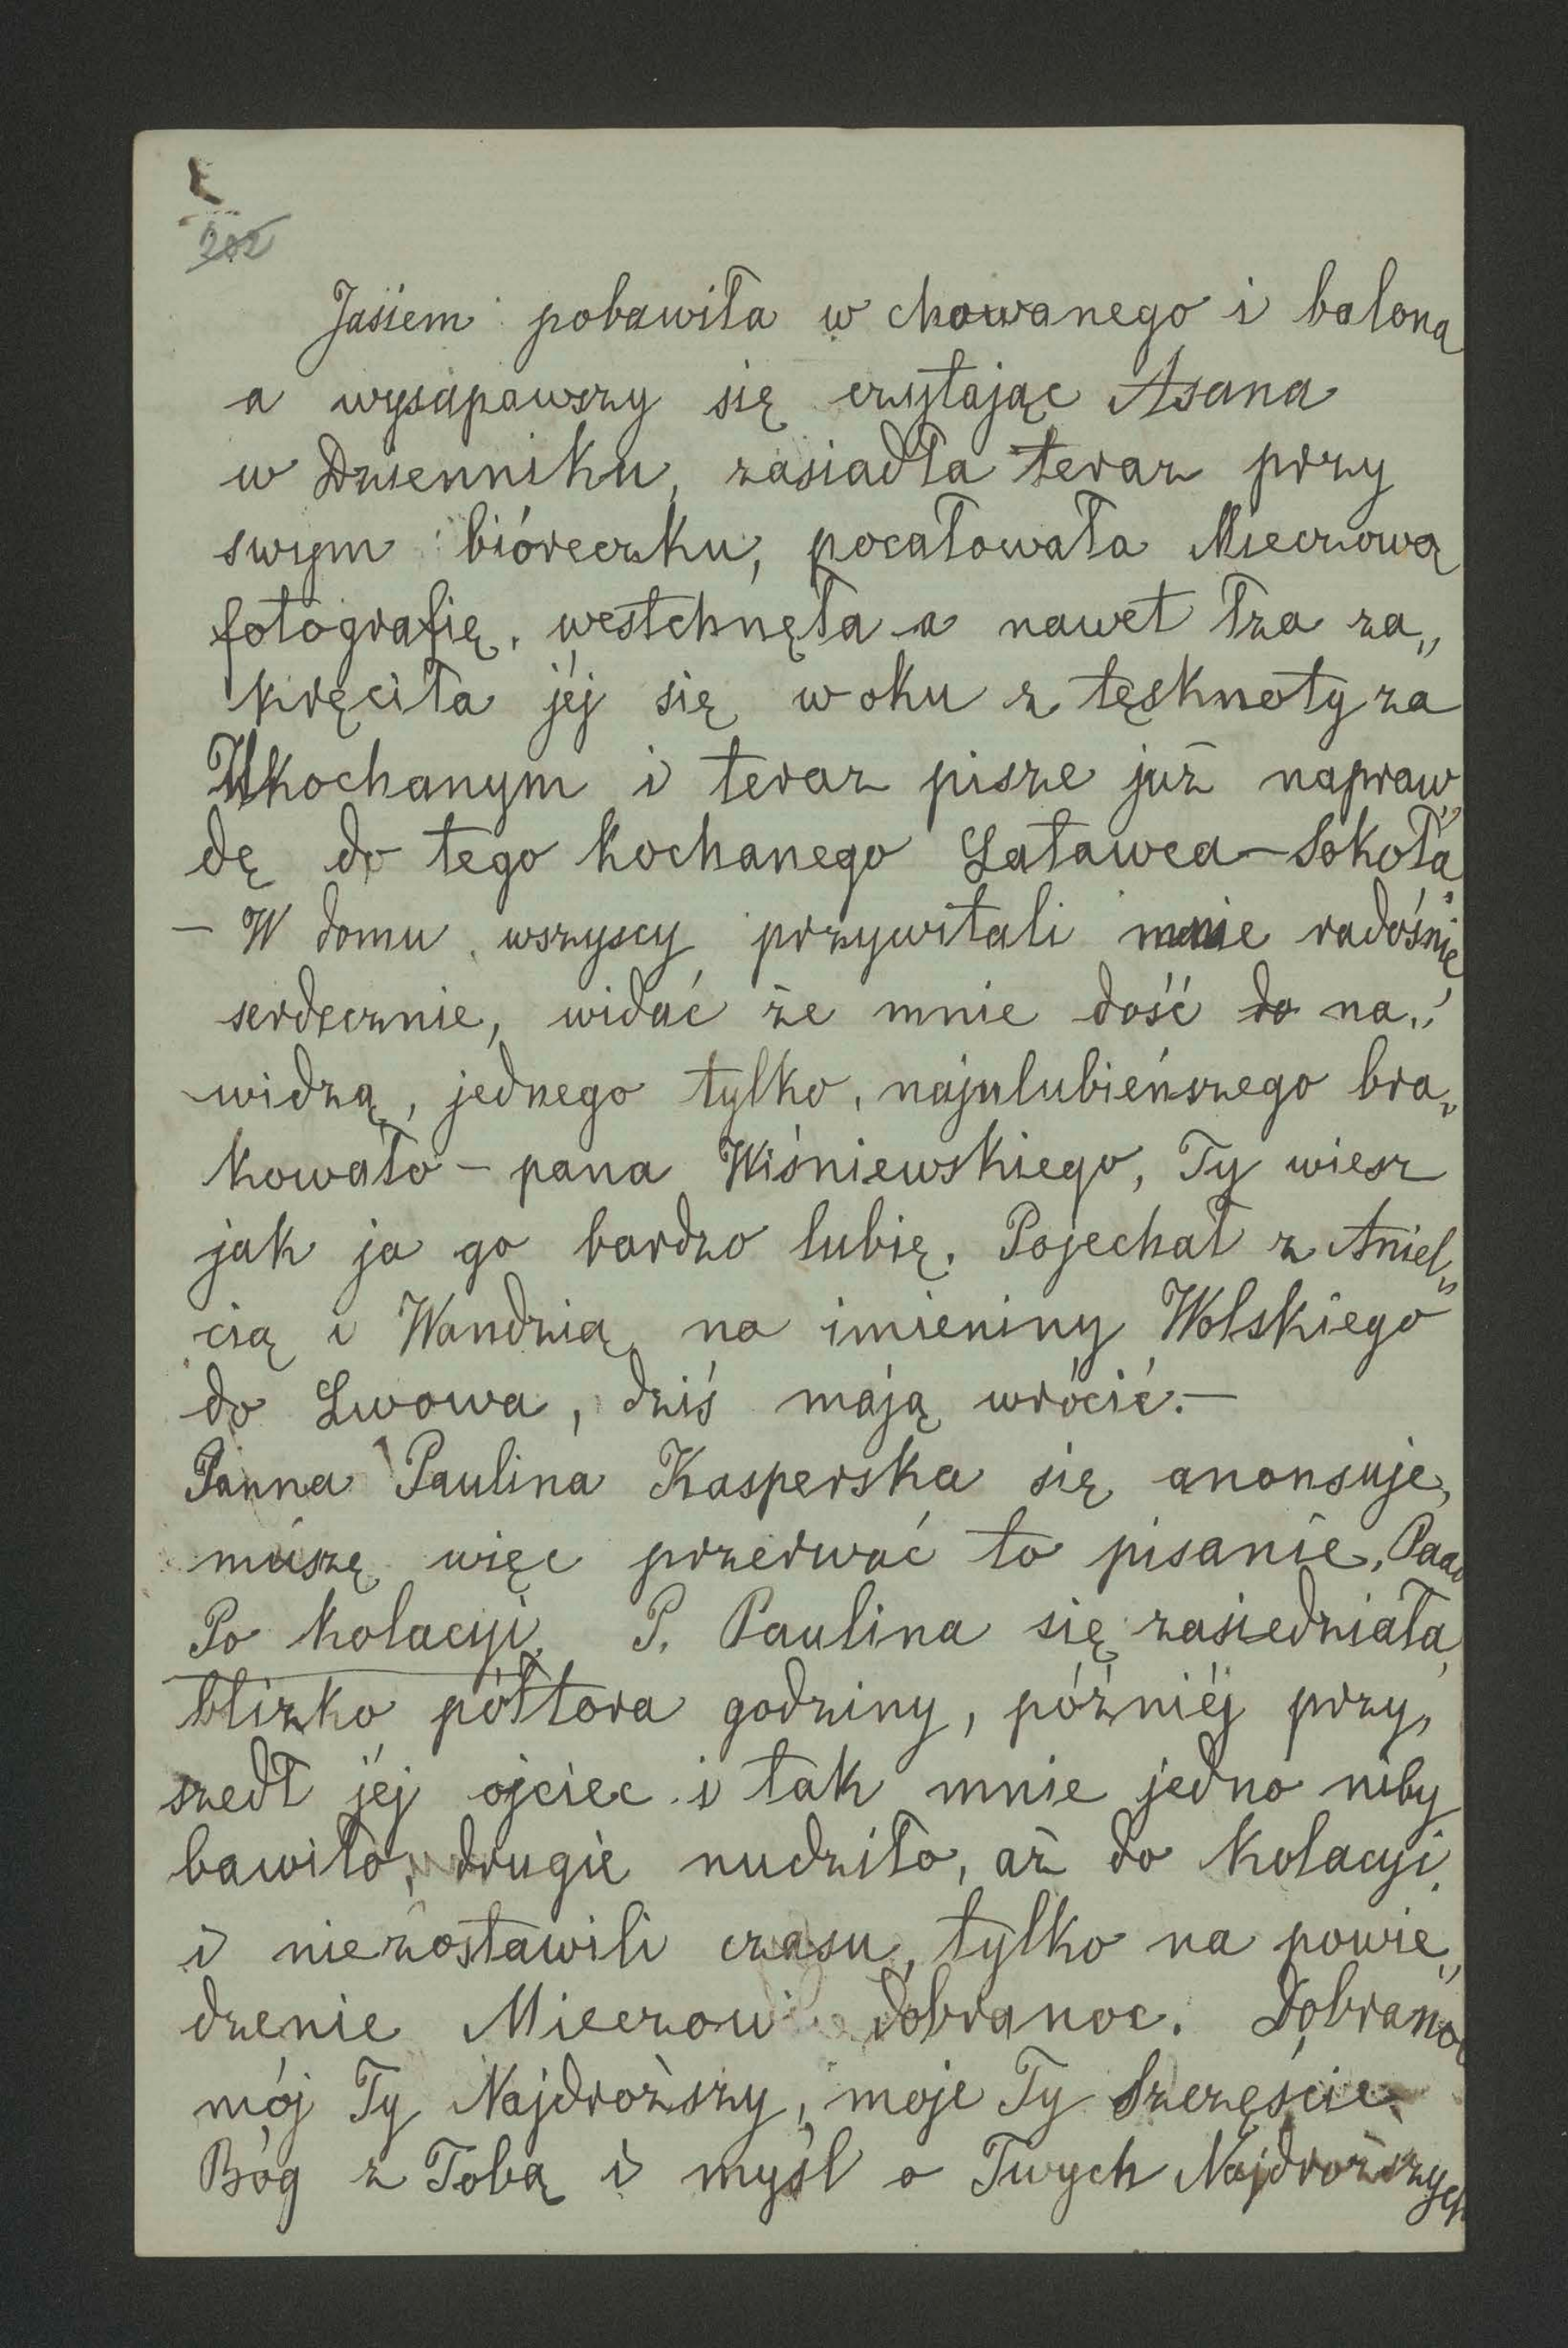 202
Jasiem pobawiła w chowanego i balona
a wysapawszy się czytając Asana
w Dzienniku, zasiadła teraz przy
swym bióreczku, pocałowała Mieczową
fotografię, westchnęła a nawet łza za„
kręciła jéj się w oku z tęsknoty za
Ukochanym i teraz pisze już napraw„
dę do tego kochanego Latawca-Sokoła
– W domu wszyscy przywitali mnie radośnie,
serdecznie, widać że mnie dość do na„
widzą, jednego tylko, najulubieńszego bra„
kowało – pana Wiśniewskiego, Ty wiesz
jak ja go bardzo lubię. Pojechał z Aniel„
cią i Wandzią na imieniny Wolskiego
do Lwowa, dziś mają wrócić. –
Panna Paulina Kasperska się anonsuje,
muszę więc przerwać to pisanie. Paa
Po kolacyi. P. Paulina się zasiedziała
blizko półtora godziny, późniéj przy„
szedł jéj ojciec i tak mnie jedno niby
bawiło, drugie nudziło, aż do kolacyi
i niezostawili czasu, tylko na powie„
dzenie Mieczowi dobranoc. Dobranoc
mój Ty Najdroższy, moje Ty Szczęście
Bóg z Tobą i myśl o Twych Najdroższych